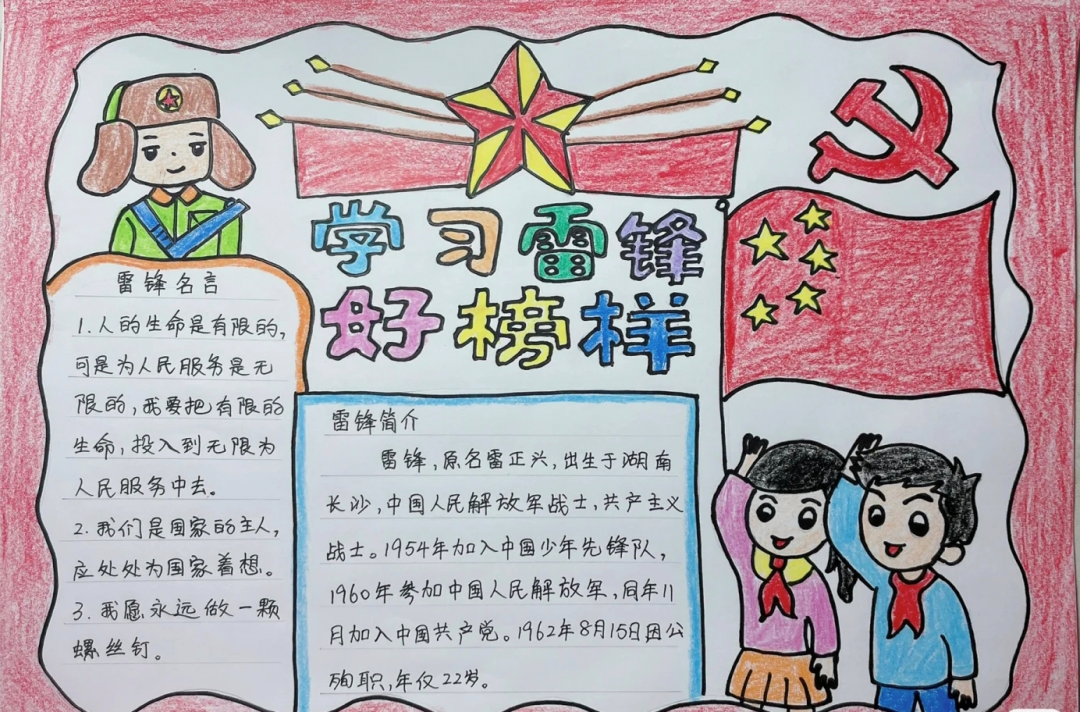 学习雷锋
好榜样
雷锋名言
1.人的生命是有限的,
可是为人民服务是无
限的,我要把有限的
生命,投入到无限为
人民服务中去。
2.我们是国家的主人,
应处处为国家着想。
3.我愿永远做一颗
螺丝钉。
雷锋简介
雷锋,原名雷正兴,出生于湖南
长沙,中国人民解放军战士,共产主义
战士。1954年加入中国少年先锋队,
1960年参加中国人民解放军,同年11
月加入中国共产党。1962年8月15日因公
殉职,年仅22岁。